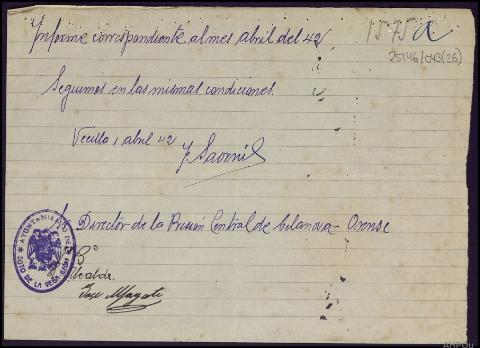 Informe correspondiente al mes abril del 42
1575
25146/043(26)
Seguimos en las mismas condiciones.
Vecilla 1 abril 42
J. Saornil
Director de la Prisión Central de Celanova - Orense
AYUNTAMIENTO DE
SOTO DE LA VEGA (LEÓN)
Vº Bº
Alcalde.
José
AHPOu